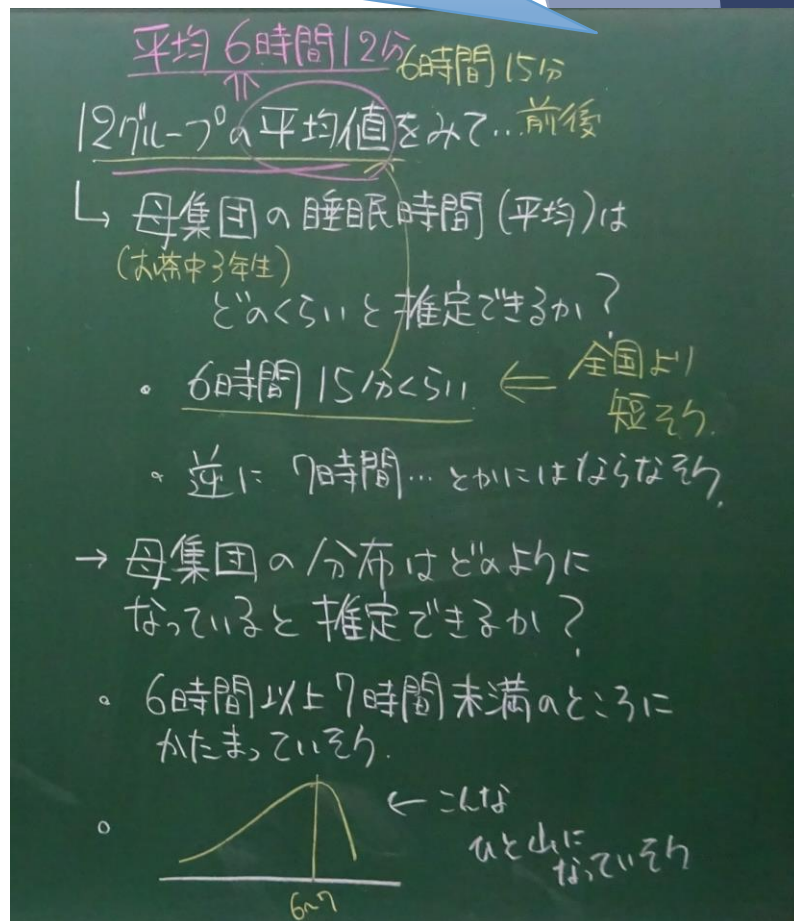 平均6時間12分
6時間15分
12グループの平均値をみて…前後
↳ 母集団の睡眠時間(平均)は
(お茶中3年生)
どのくらいと推定できるか?
・ 6時間15分くらい ⇐ 全国より
短そう.
・逆に 7時間…とかにはならなそう.
→ 母集団の分布はどのように
なっていると推定できるか?
・ 6時間以上7時間未満のところに
かたまっていそう.
・ ← こんな
ひと山に
なっていそう
6~7